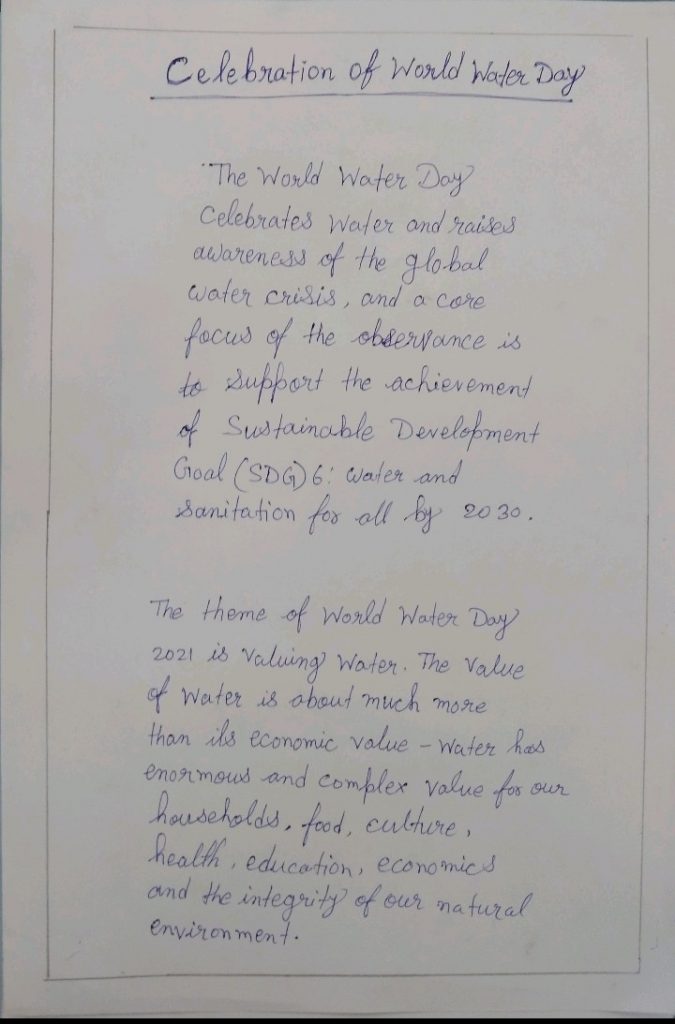 Celebration of World Water Day
"The World Water Day
Celebrates Water and raises
awareness of the global
water crisis, and a core
focus of the observance is
to support the achievement
of Sustainable Development
Goal (SDG) 6: water and
sanitation for all by 2030.
The theme of World Water Day
2021 is Valuing Water. The Value
of Water is about much more
than its economic value - Water has
enormous and complex value for our
households, food, culture,
health, education, economics
and the integrity of our natural
environment.